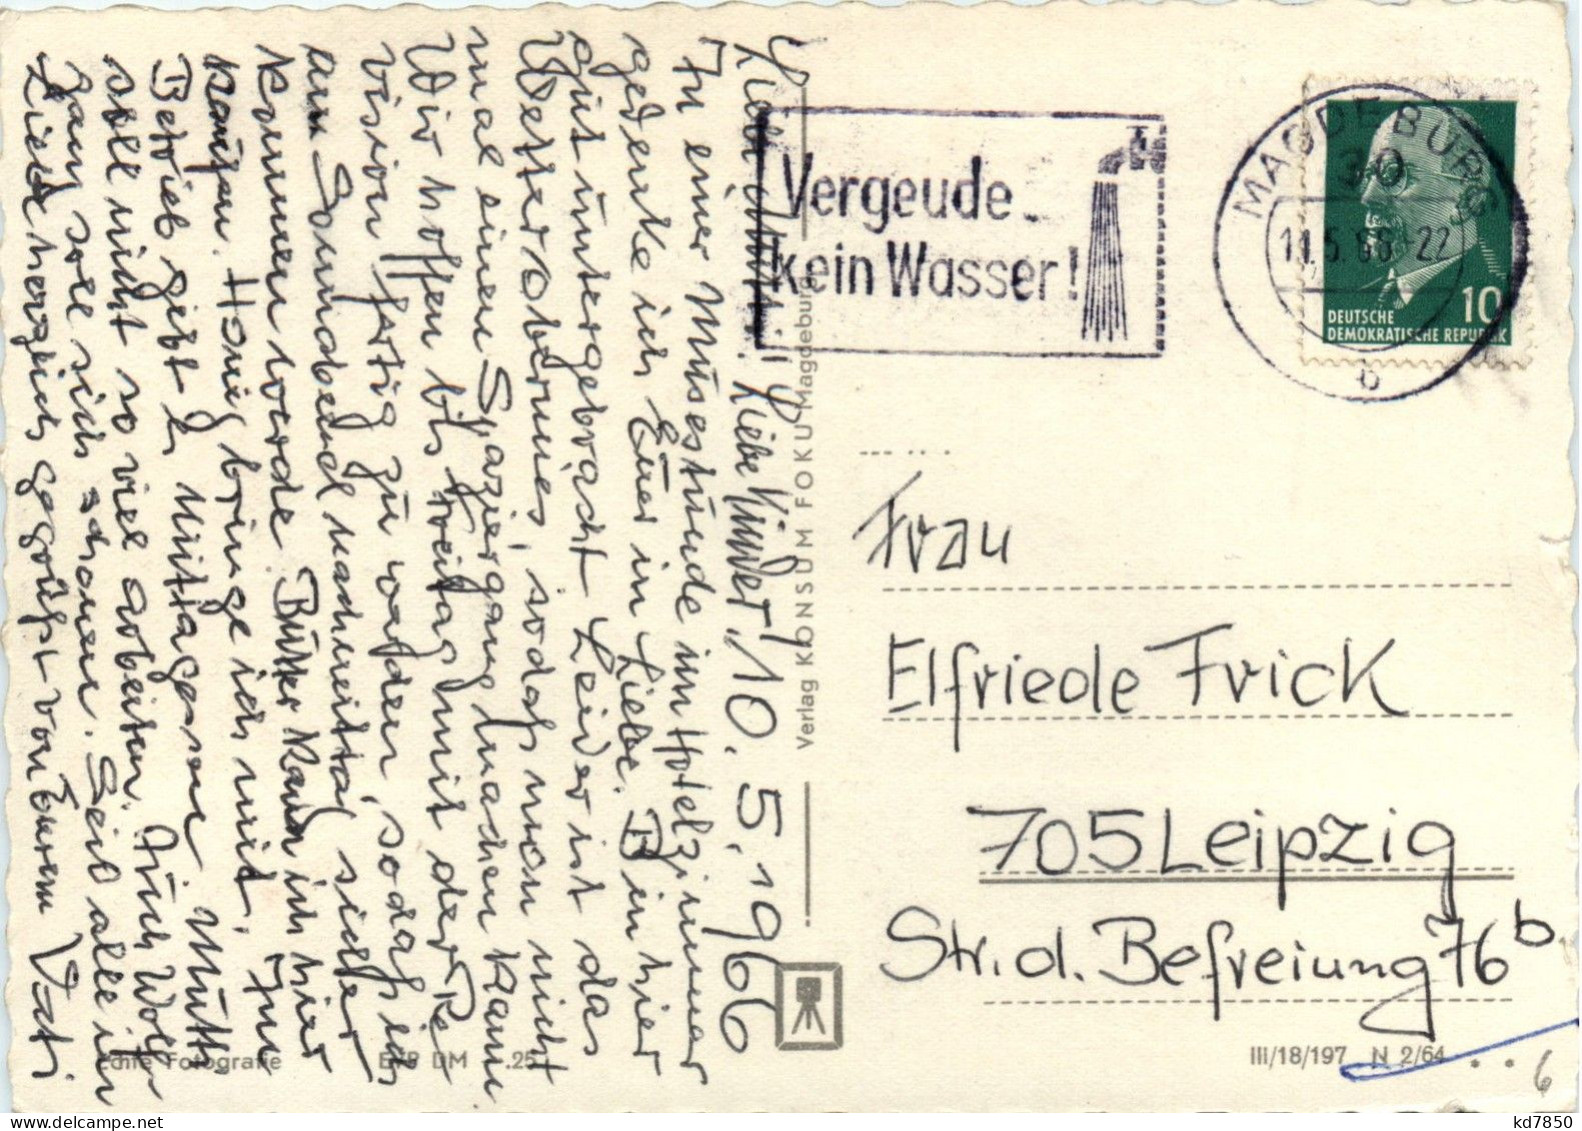 Liebe Mutti! Liebe Kinder! 10.5.1966
In einer Musestunde im Hotelzimmer
gedenke ich Euer in Liebe. Bin hier
gut untergebracht. Leider ist das
Wetter Oberunes, sodaß man nicht
mal einen Spaziergang machen kann.
Wir hoffen bis Freitag mit der Re
vision fertig zu werden, sodaß ich
am Sonnabend nachmittag sicher
kommen werde. Butter kann ich hier
kaufen. Honig bringe ich mit. Im
Betrieb gibt es Mittagessen. Mutti
soll nicht so viel arbeiten. Auch Wolf-
gang soll sich schonen. Seid alle in
Liebe herzlich gegrüßt von Eurem Vati
Vergeude
kein Wasser!
MAGDEBURG
30
11.5.66-22
b
10
DEUTSCHE
DEMOKRATISCHE REPUBLIK
Verlag KONSUM FOKU Magdeburg
Frau
Elfriede Frick
705 Leipzig
Str. d. Befreiung 76 b
Echte Fotografie EVP DM -.25
III/18/197 N 2/64
6
kd7850